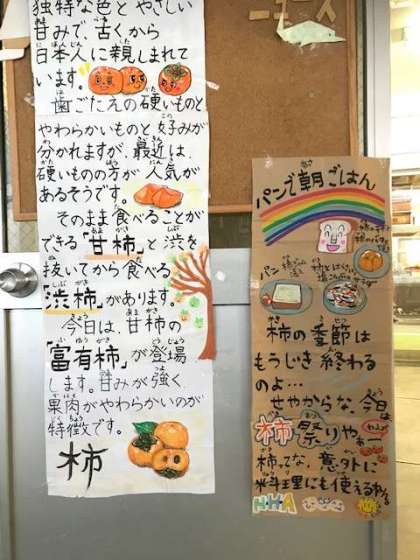 独特な色とやさしい
甘みで、古くから
日本人に親しまれて
います。
歯ごたえの硬いものと
やわらかいものと好みが
分かれますが、最近は、
硬いものの方が人気が
あるそうです。
そのまま食べることが
できる「甘柿」と渋を
抜いてから食べる
「渋柿」があります。
今日は、甘柿の
「富有柿」が登場
します。甘みが強く、
果肉がやわらかいのが
特徴です。
柿
パンで朝ごはん
パン
柿の季節は
もうじき終わる
のよ…
せやからな、今日は
柿祭りやぁー
柿ってな、意外に
料理にも使えるねん